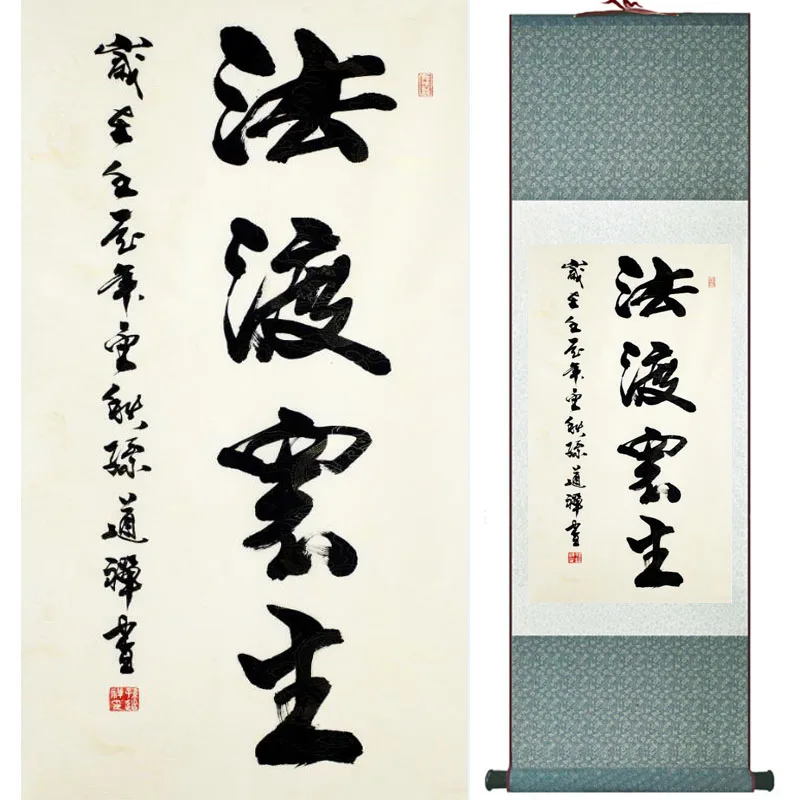 法渡眾生
歲在壬辰年金秋孫道禪書
法渡眾生
歲在壬辰年金秋孫道禪書